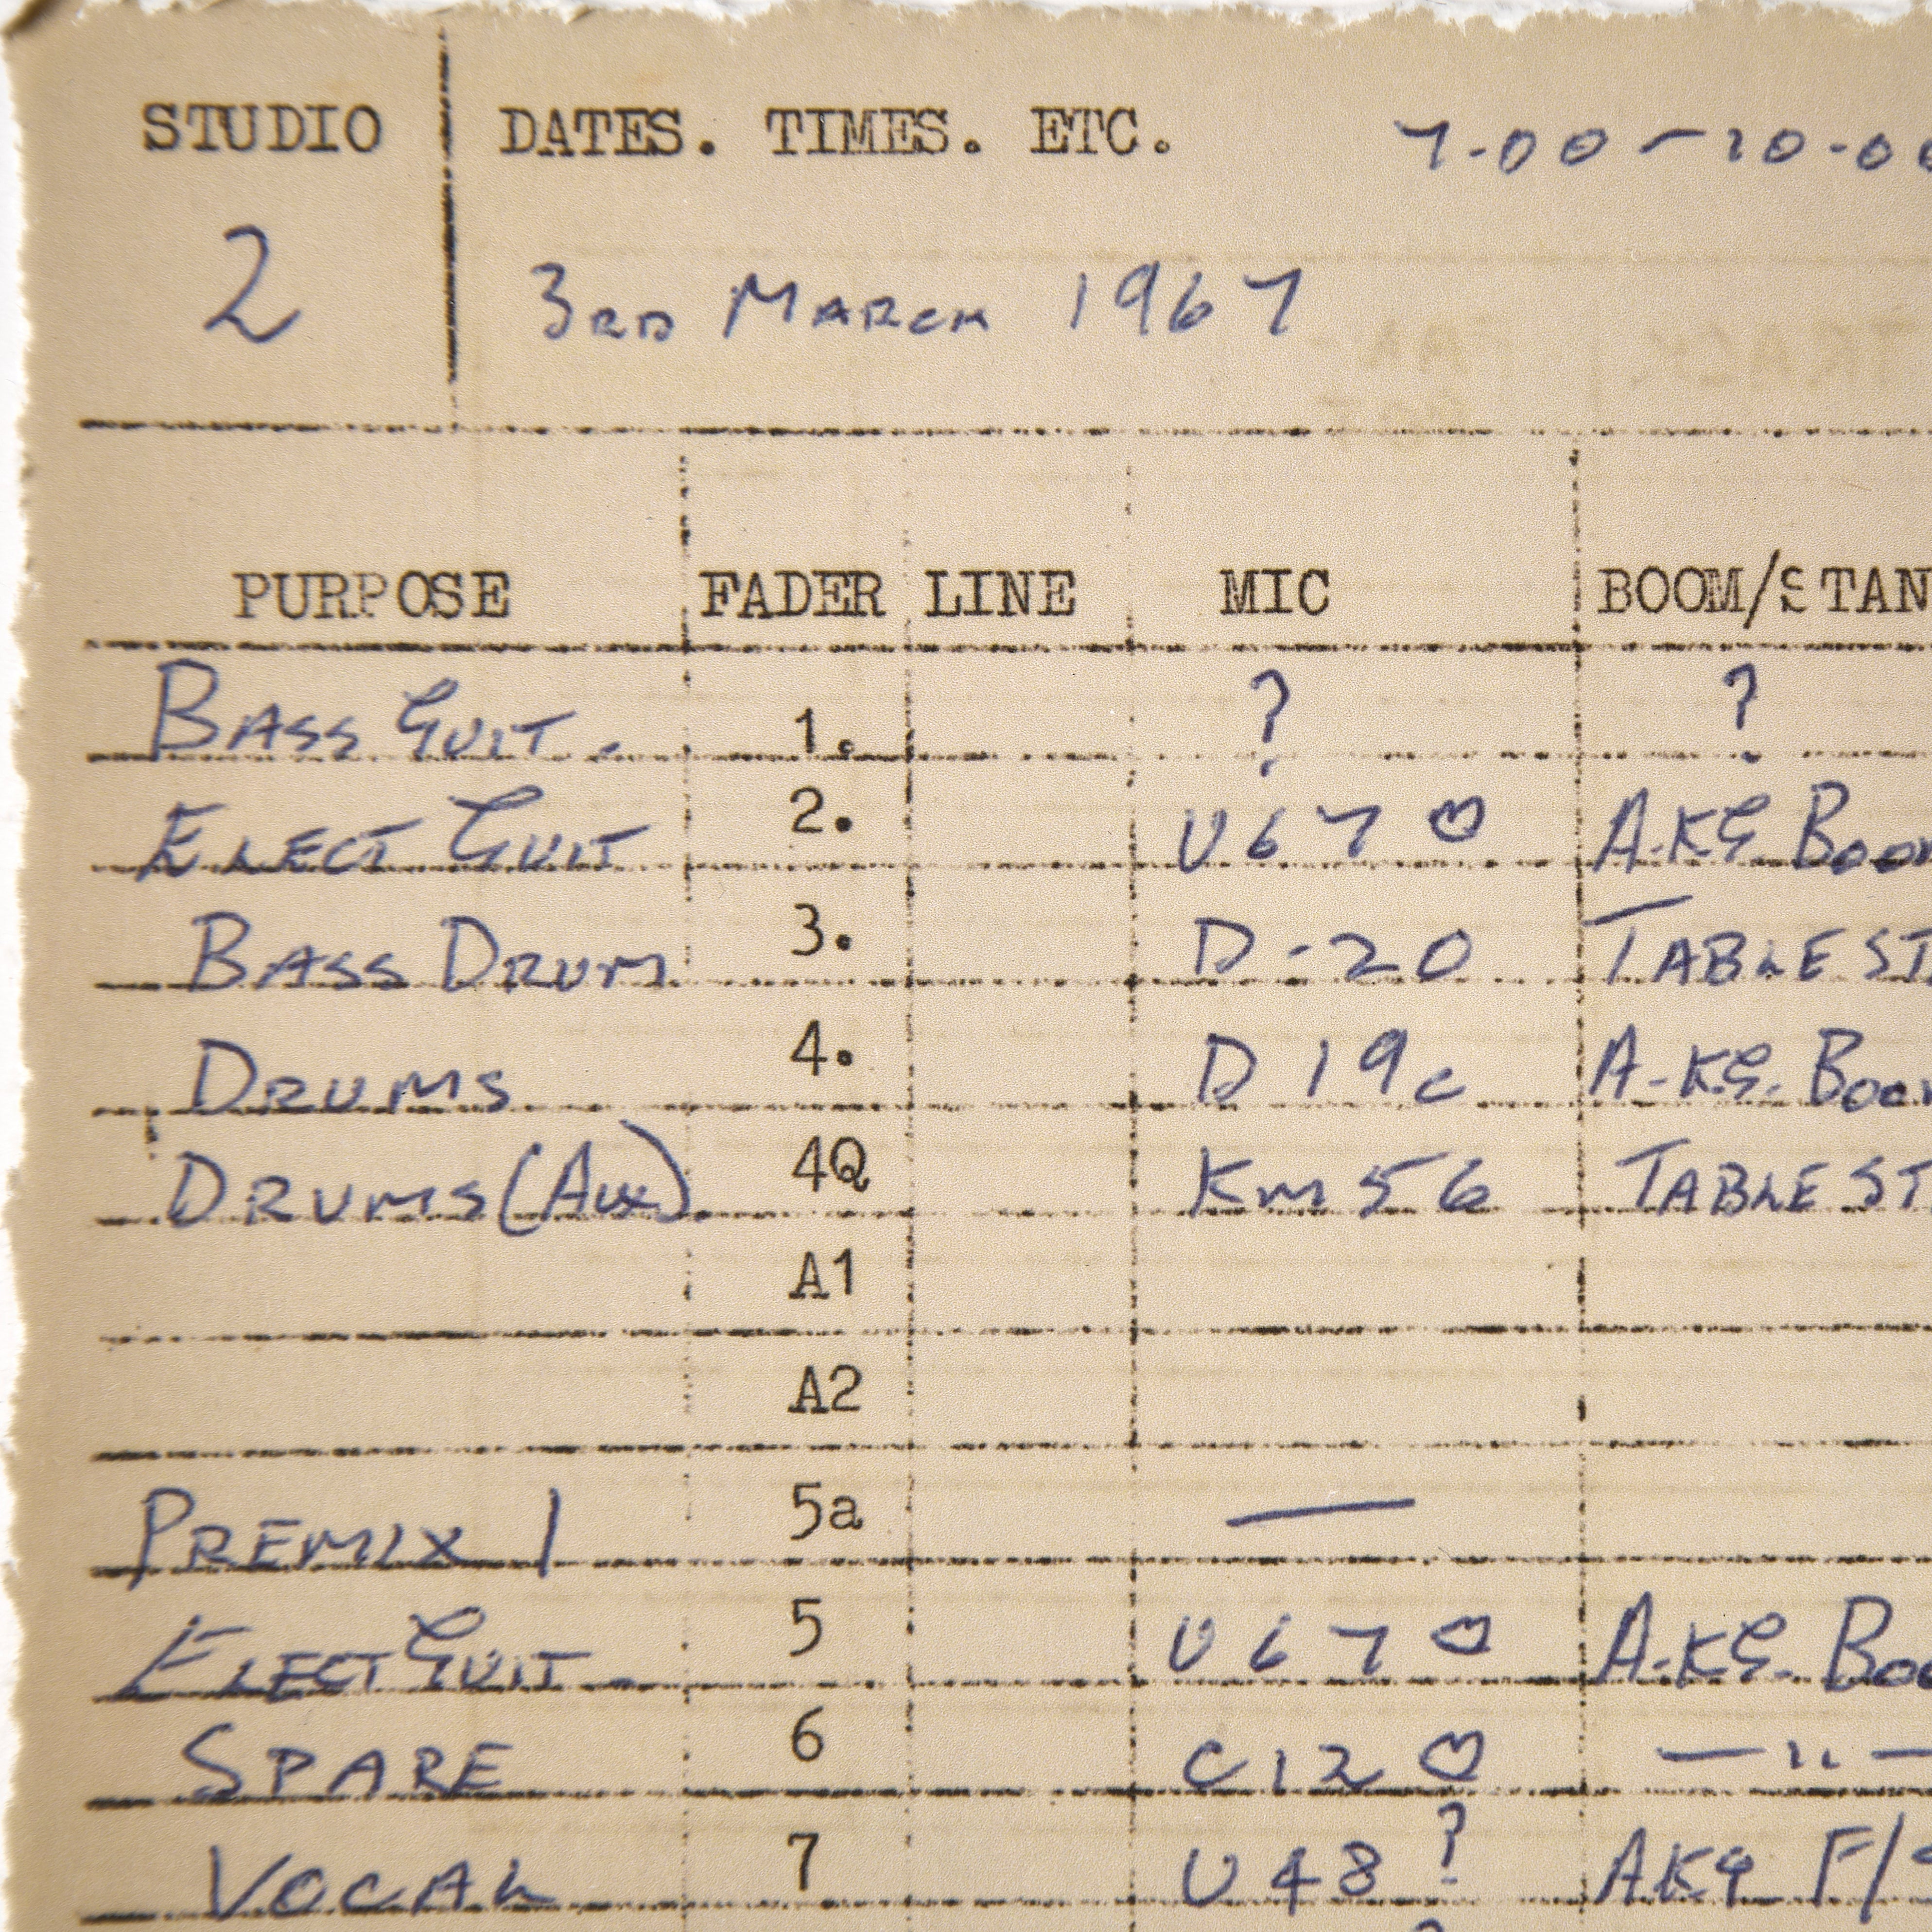 STUDIO DATES. TIMES. ETC. 7.00 - 10.00
2 3RD MARCH 1967
PURPOSE FADER LINE MIC BOOM/STAN
BASS GUIT. 1. ? ?
ELECT GUIT 2. U67 A.K.G. BOOM
BASS DRUM 3. D-20 TABLE ST
DRUMS 4. D19c A-K.G. BOOM
DRUMS (AUX). 4Q KM56 TABLE ST
A1
A2
PREMIX 1 5a —
ELECT GUIT. 5 U67 A.K.G. BOO
SPARE 6 C12 — " —
VOCAL 7 U48 ? AKG F/S